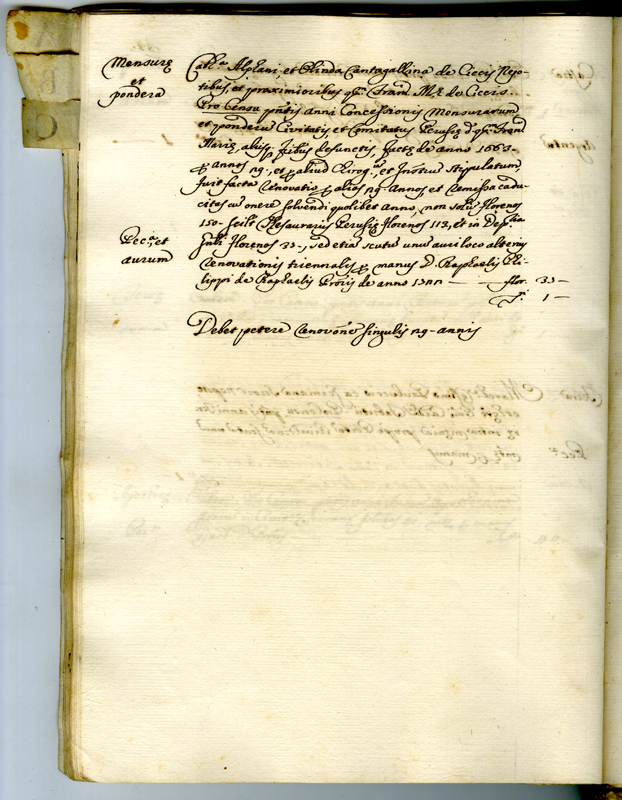 Mensurę
et
pondera
Cath.ª Alphani, et Olinda Cantagallina de Ciccis Nepo-
tibus, et proximioribus qm Fran. M.ę de Ciccis.
Pro Censu pntis anni Concessionis Mensurarum
et ponderū Civitatis, et Comitatus Perusię d. qm Franci
Marię, alijsq. fribus defunctis, factę de anno 1663-
annos 29, et aliud Chirog. et Instrm Stipulatum,
fuit facta renovatio alios 29 Annos et remissa cadu-
citas cū onere solvendi quolibet Anno, non solū florenos
150- scilt Thesaurarię Perusię florenos 113, et in Dep.ria
Pec.ª, et
aurum
florenos 33-, sed etiā scutū unū auri loco alterius
renovationis triennalis, manus D. Raphaelis Phi-
lippi de Raphaelis Prorijs de anno — flor. 33 —
1 —
Debet petere renovōne singulis 29- annis
C